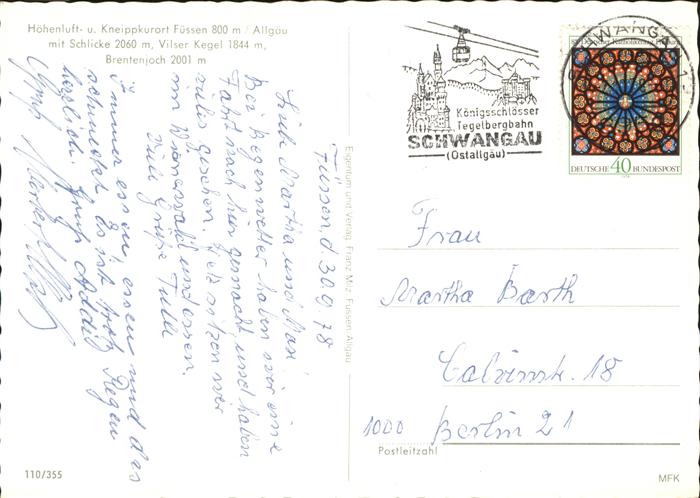 Höhenluft- u. Kneippkurort Füssen 800 m / Allgäu
mit Schlicke 2060 m, Vilser Kegel 1844 m,
Brentenjoch 2001 m
Füssen, d 30.9.78
Liebe Martha und Max!
Bei Regenwetter haben wir eine
Fahrt nach hier gemacht, und haben
viel gesehen. Jetzt sitzen wir
im und essen.
Viele Grüße Tulla
Immer essen, essen und das
schmeckt. Es ist trotz Regen
herrlich. Gruß
Gruß
Eigentum und Verlag Franz Milz, Füssen Allgäu
110/355
Königsschlösser
Tegelbergbahn
SCHWANGAU
(Ostallgäu)
SCHWANGAU 1
DEUTSCHE 40 BUNDESPOST
1978
Frau
Martha Barth
Calvinstr. 18
1000 Berlin 21
Postleitzahl
MFK